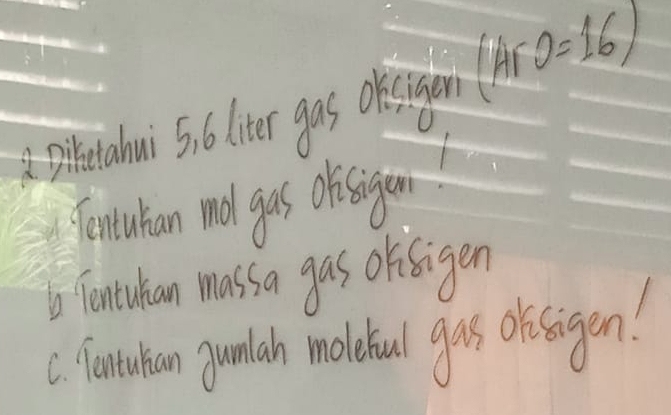 2. Diketahui 5,6 liter gas oksigen (Ar O=16)
a Tentukan mol gas oksigen!
b Tentukan massa gas oksigen
c. Tentukan Jumlah molekul gas oksigen!